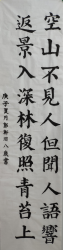 空山不見人但聞人語響
返景入深林復照青苔上
庚子夏月 八歲書